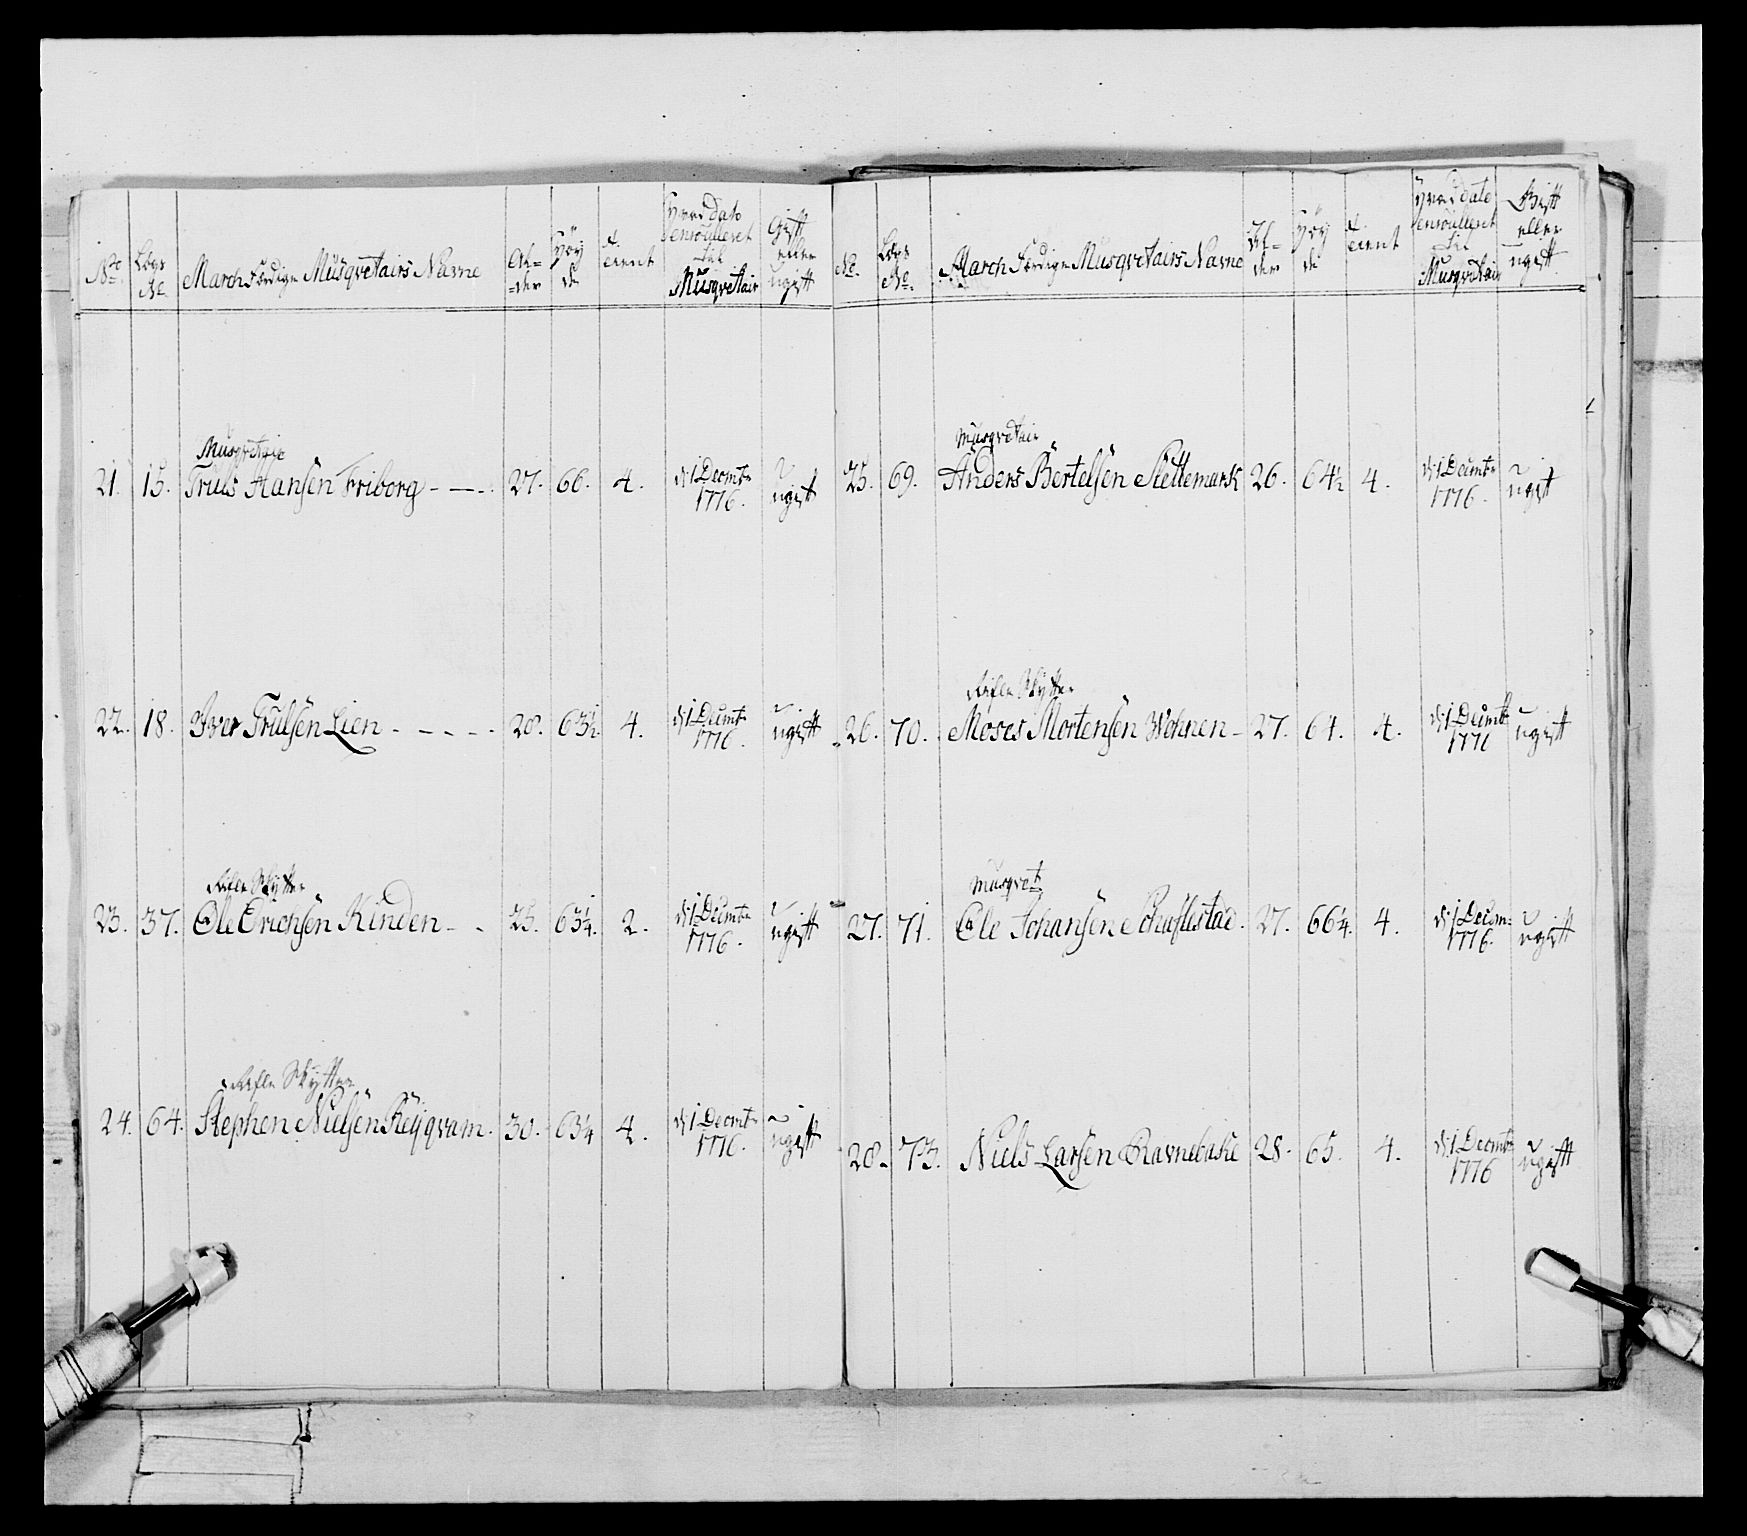 No. Lægs No. March Færdige Musqvetairs Navne Al=der Höy de x cient Hvad dato enroulleret til Musqvetair Gift eller ugift
Musqvetair
21. 15. Truls Hansen Friborg - - - . 27. 66. 4. d: 1 Decmbr 1776. ugift
22. 18. Iver Trulsen Lien - - - - - 28. 63½ 4. d: 1 Decmbr 1776. ugift
Rifle Skytter
23. 37. Ole Erichsen Kinden - - 25. 63¼. 2. d: 1 Decmbr 1776. ugift
Rifle Skytter
24. 64. Stephen Nielsen Røyqvam. 30. 63¼ 4. d: 1 Decmbr 1776. ugift
No. Lægs No. March Færdige Musqvetairs Navne Al=der Höy de x cient Hvad dato enroulleret til Musqvetair Gift eller ugift
Musqvetair
25. 69. Anders Bertelsen Slettemark 26. 64½ 4. d: 1 Decmbr 1776. ugift
Rifle Skytter
26. 70. Moses Mortensen Wohnen - 27. 64. 4. d: 1 Decmbr 1776 ugift
Musqvetr
27. 71. Ole Johansen Schuflestad. 27. 66¼. 4. d: 1 Decem: 1776. ugift
28. 73. Niels Larsen Ravnebake 28. 65. 4. d: 1 Decmbr 1776 ugift